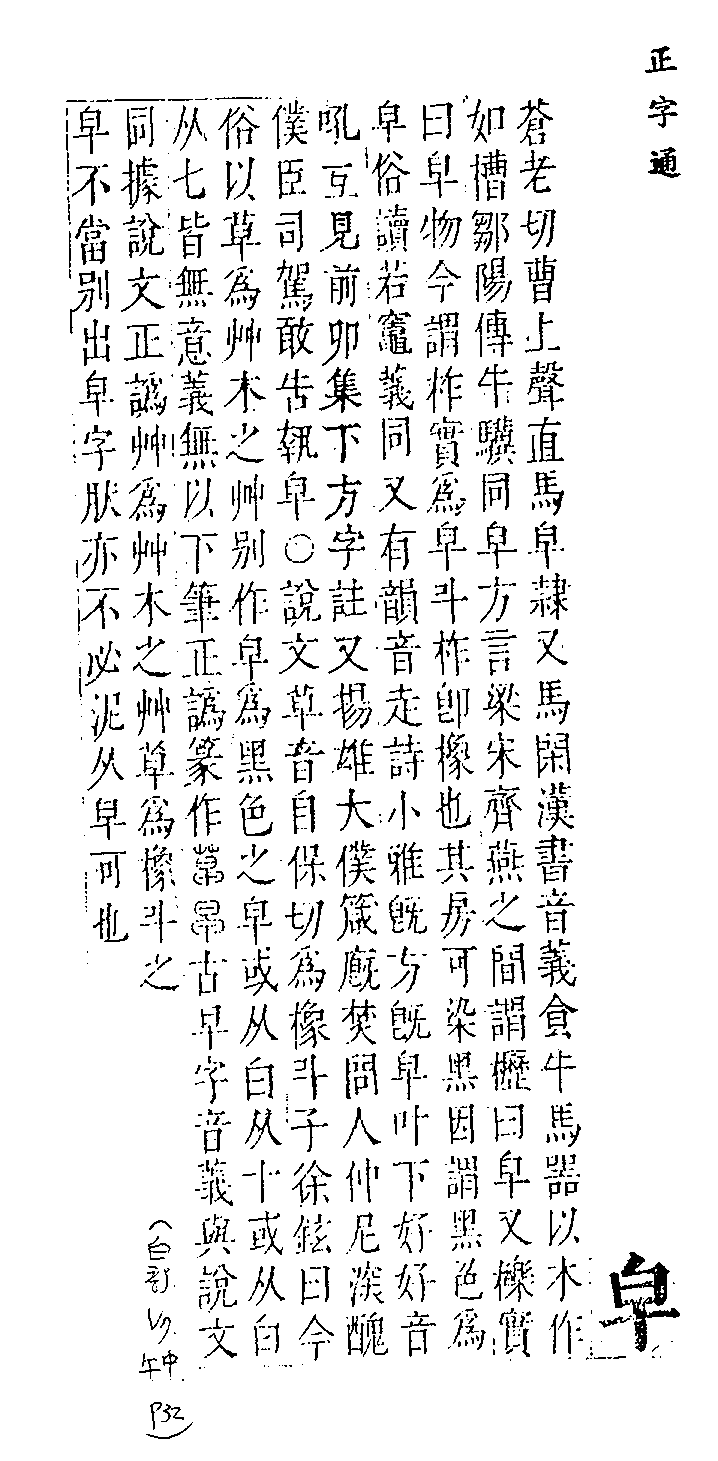 正字通
皁
蒼老切曹上聲直馬皁隷又馬閑漢書音義食牛馬器以木作
如槽鄒陽傳牛驥同皁方言梁宋齊燕之間謂櫪曰皁又櫟實
曰皁物今謂柞實爲皁斗柞卽橡也其房可染黑因謂黑色爲
皁俗讀若竈義同又有韻音走詩小雅旣方旣皁叶下好好音
吼互見前卯集下方字註又揚雄大僕箴廐焚問人仲尼湠醜
僕臣司駕敢告執皁○說文草音自保切爲橡斗子徐鉉曰今
俗以草爲艸木之艸别作皁爲黑色之皁或从白从十或从白
从七皆無意義無以下筆正譌篆作古早字音義與說文
同據說文正譌艸爲艸木之艸草爲橡斗之
皁不當别出皁字肰亦不必泥从早可也
(白部 午中
P32